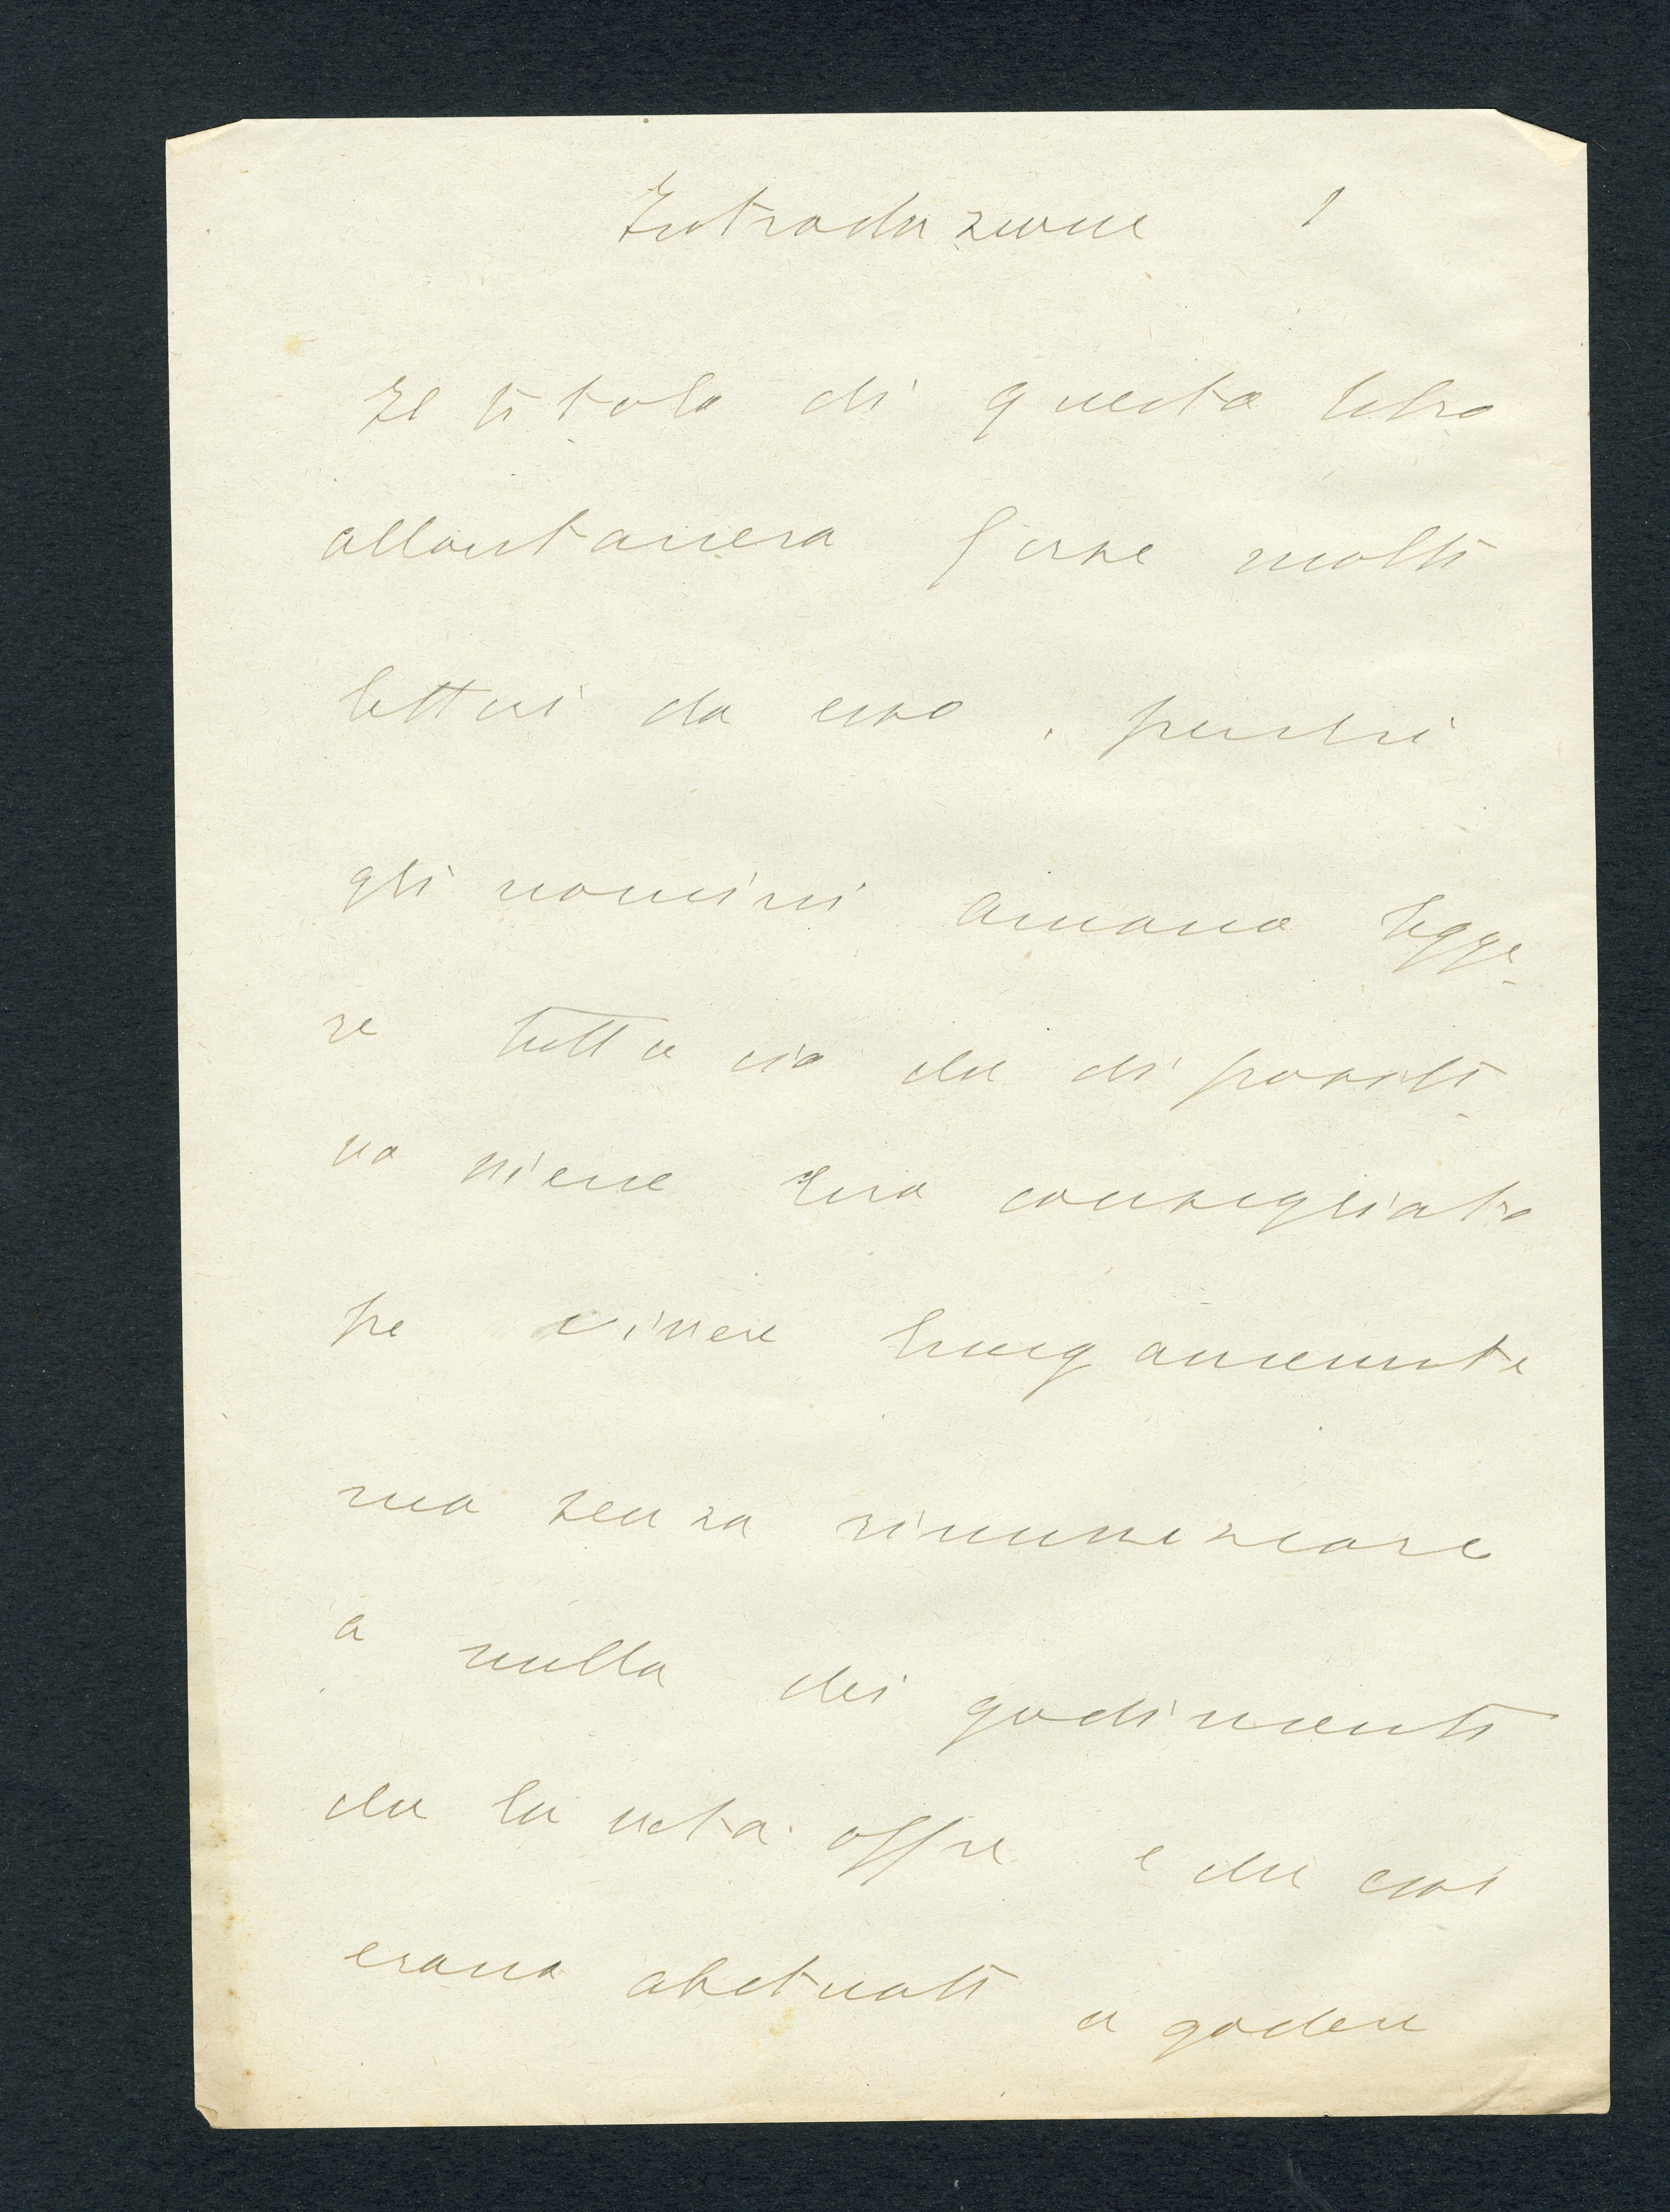 Introduzione 1
Il titolo di questo libro
allontanera forse molti
lettori da esso, perchè
gli uomini amano legge-
re tutto ciò che di positi-
vo viene loro consigliato
per vivere lungamente
ma senza rinunziare
a nulla dei godimenti
che la vita offre e che essi
erano abituati a godere